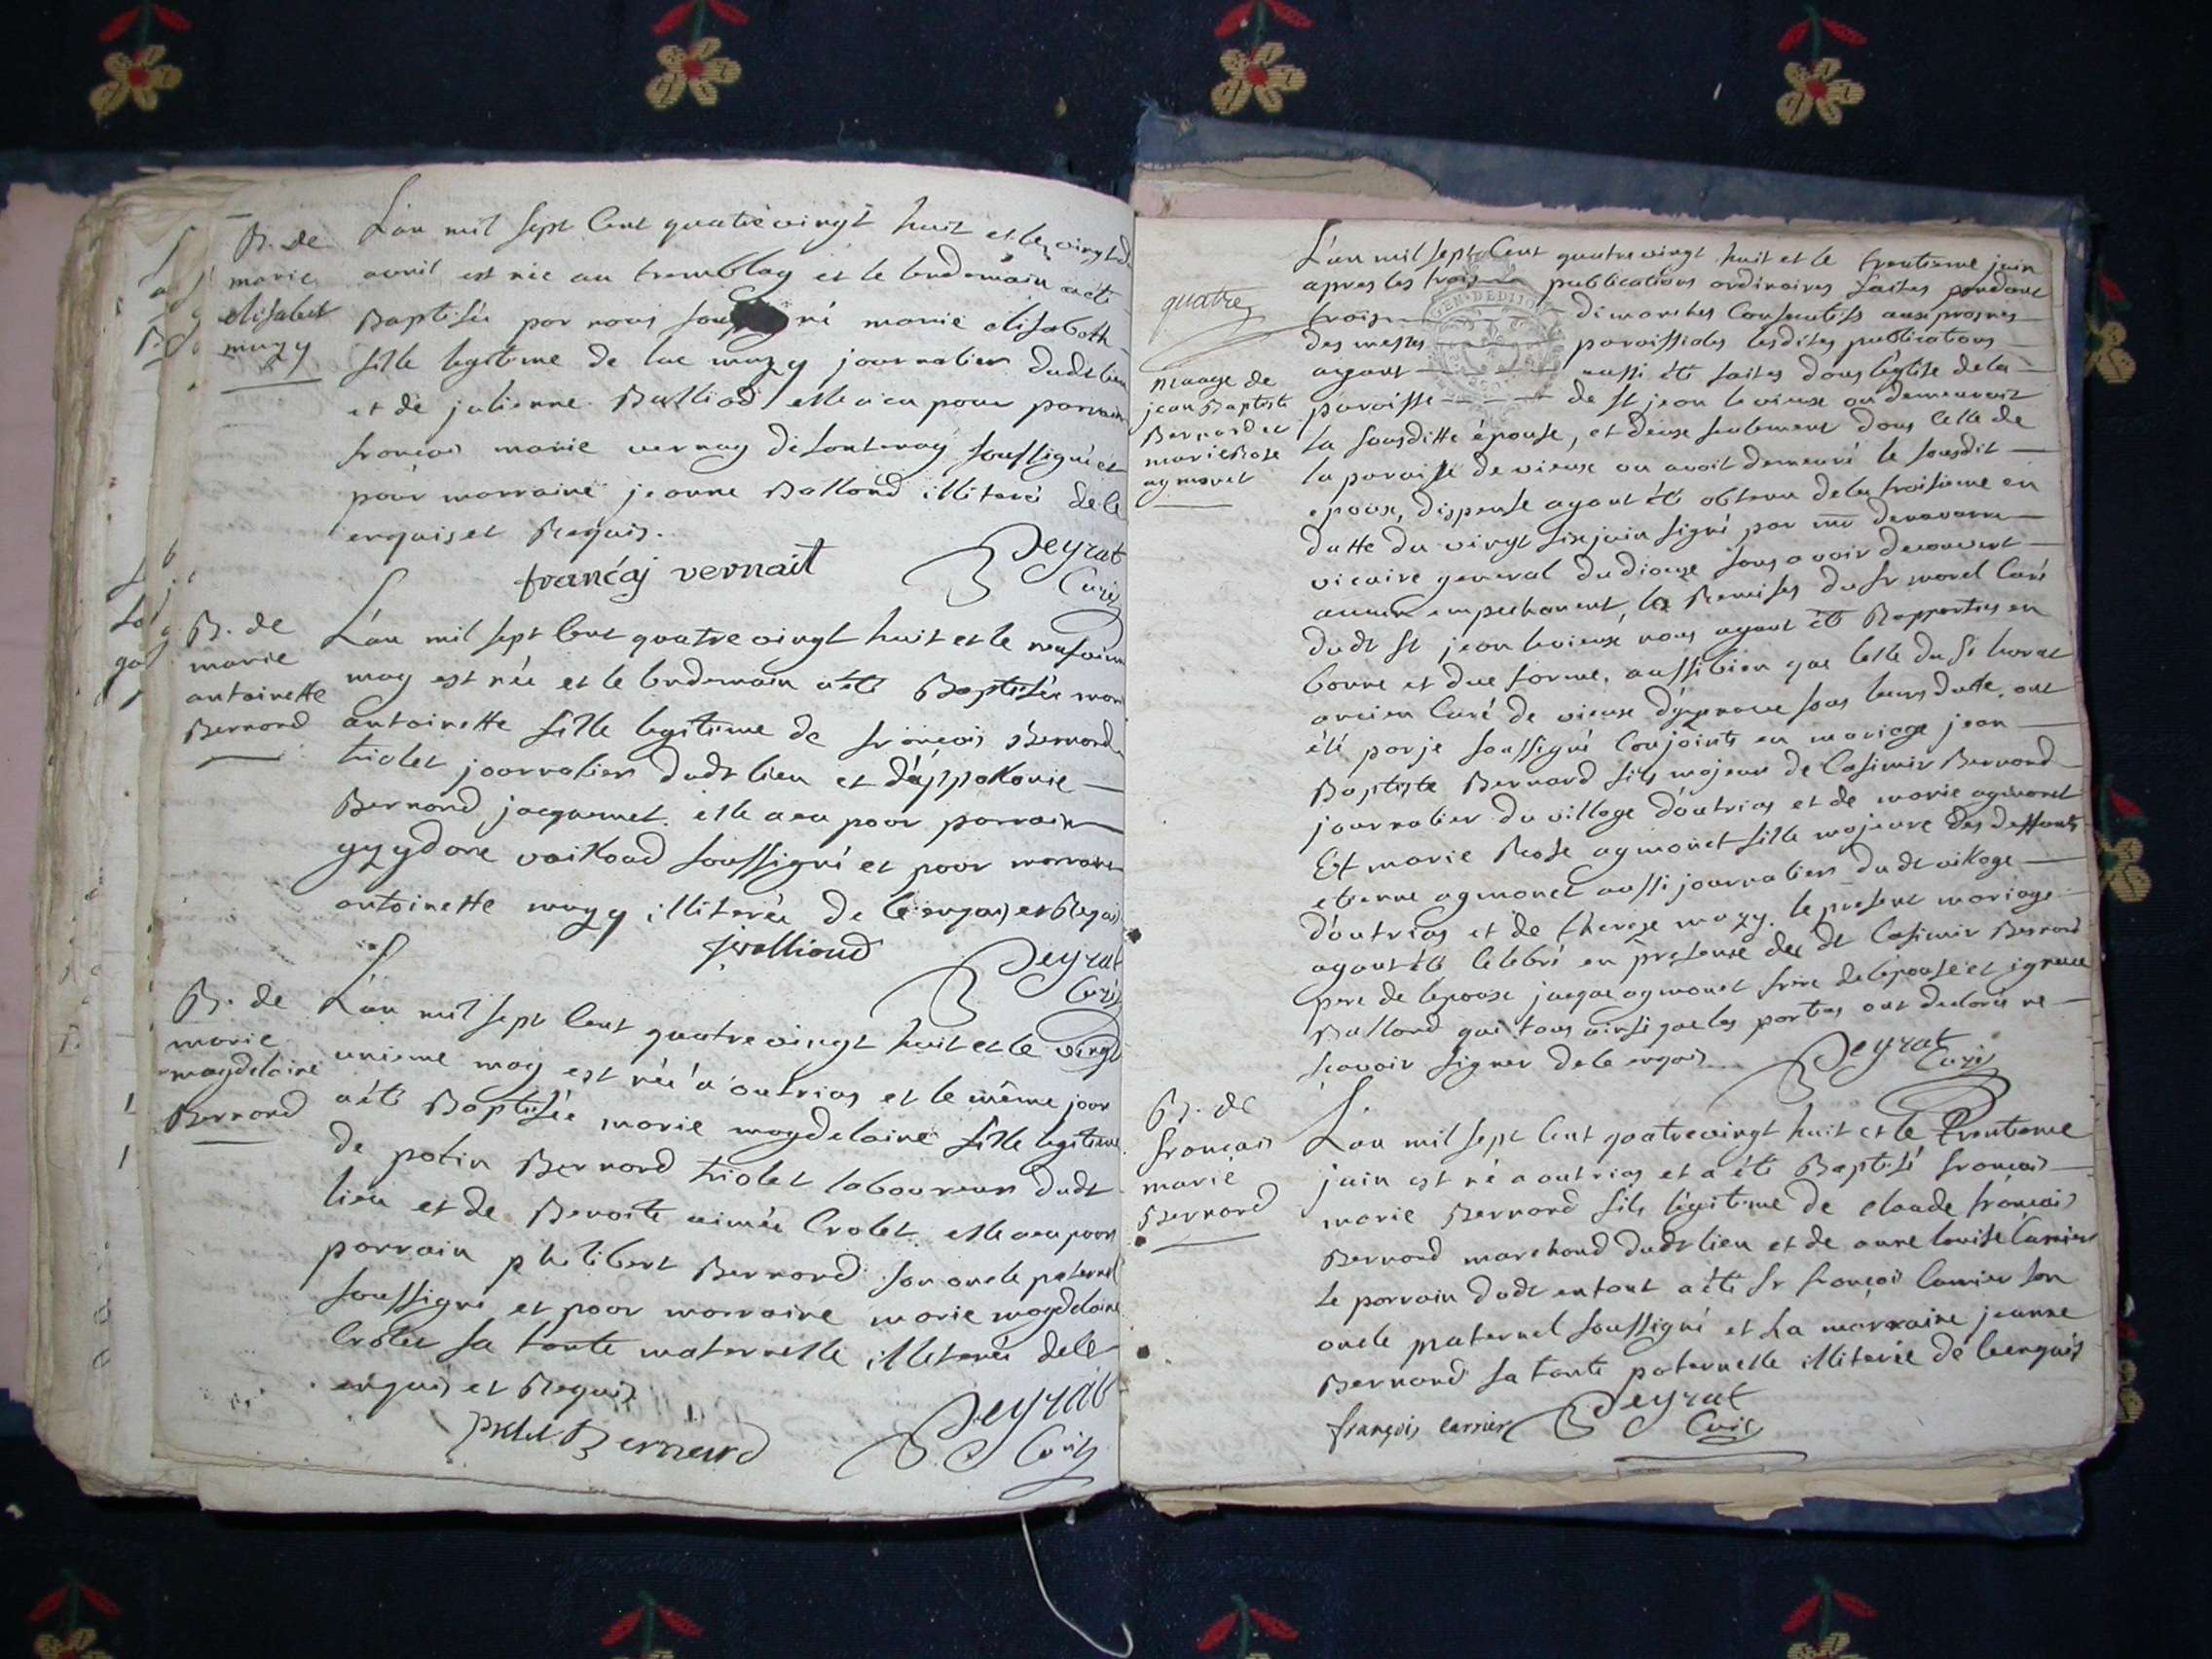 B. de
marie
elisabet
muzy
L'an mil sept Cent quatrevingt huit et le vingt
avril est née au tremblay et le lendemain a été
Baptisée par nous marie elisabeth
fille legitime de luc muzy journalier dudt lieu
et de julienne Balliod elle a eu pour parrain
francois marie vernay de soussigné et
pour marraine jeanne Balland illiterée de le
enquis et Requis.
francaj vernait
Peyrat
Curé
B. de
marie
antoinette
Bernard
L'an mil sept Cent quatre vingt huit et le
may est née et le lendemain a été Baptisée
antoinette fille legitime de francois Bernard
triolet journalier dudt lieu et d'appolonie
Bernard jacquemet. elle a eu pour parrain
soussigné et pour marraine
antoinette muzy illiterée de le enquis et Requis
jvallioud
Peyrat
Curé
B. de
marie
magdelaine
Bernard
L'an mil sept Cent quatrevingt huit et le vingt
unieme may est née a outrias et le même jour
a été Baptisée marie magdelaine fille legitime
de potin Bernard triolet laboureur dudt
lieu et de Benoite aimée Crolet elle a eu pour
parrain philibert Bernard son oncle paternel
soussigné et pour marraine marie magdelaine
Crolet sa tante maternelle illiterée de le
enquis et Requis
Bernard
Peyrat
Curé
quatre
Mariage de
jean Baptiste
Bernard et
marie Rose
aymonet
L'an mil sept Cent quatre vingt huit et le trentieme juin
apres les trois publications ordinaires faites pendant
trois dimanches Consecutifs aux prosnes
des messes paroissiales lesdites publications
ayant aussi été faites dans l'église de la
paroisse de st jean le vieux ou demeuroit
la susditte épouse, et deux seulement dans celle de
la paroisse de vieux ou avoit demeuré le susdit
epoux, dispense ayant été obtenu de la troisieme en
datte du vingt six juin signé par mr denavarre
vicaire general du dioceze sans avoir decouvert
aucun empechement, les Remises du sr morel Curé
dudt st jean le vieux nous ayant été Rapportées en
bonne et due forme, aussi bien que celle du Sr
ancien Curé de vieux sous leurs datte. ont
été par je soussigné Conjoints en mariage jean
Baptiste Bernard fils majeur de Casimir Bernard
journalier du village d'outrias et de marie aymonet
Et marie Rose aymonet fille majeure des deffunts
etienne aymonet aussi journalier dudt village
d'outrias et de therese muzy. le present mariage
ayant été celebré en presence du dt Casimir Bernard
pere de lepoux jacque aymonet frere de lepouse et ignace
Balland qui tous ainsi que les parties ont declaré ne
scavoir signer de le enquis
Peyrat
Curé
B. de
francois
marie
Bernard
L'an mil sept Cent quatrevingt huit et le trentieme
juin est né a outrias et a été Baptisé francois
marie Bernard fils légitime de claude françois
Bernard marchand dudt lieu et de anne louise Carrier
le parrain dudt enfant a été sr françois Carrier son
oncle maternel soussigné et la marraine jeanne
Bernard sa tante paternelle illiterée de le enquis
françois carrier
Peyrat
Curé